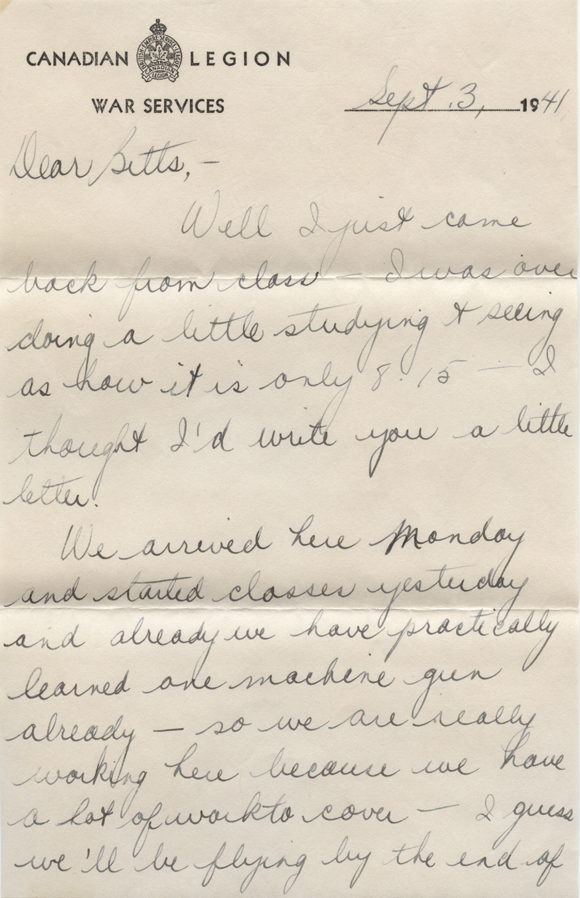 CANADIAN LEGION
WAR SERVICES
Sept. 3, 1941
Dear Bitts, —
Well I just came
back from class — I was over
doing a little studying & seeing
as how it is only 8.15 — I
thought I'd write you a little
letter.
We arrived here Monday
and started classes yesterday
and already we have practically
learned one machine gun
already — so we are really
working here because we have
a lot of work to cover — I guess
we'll be flying by the end of